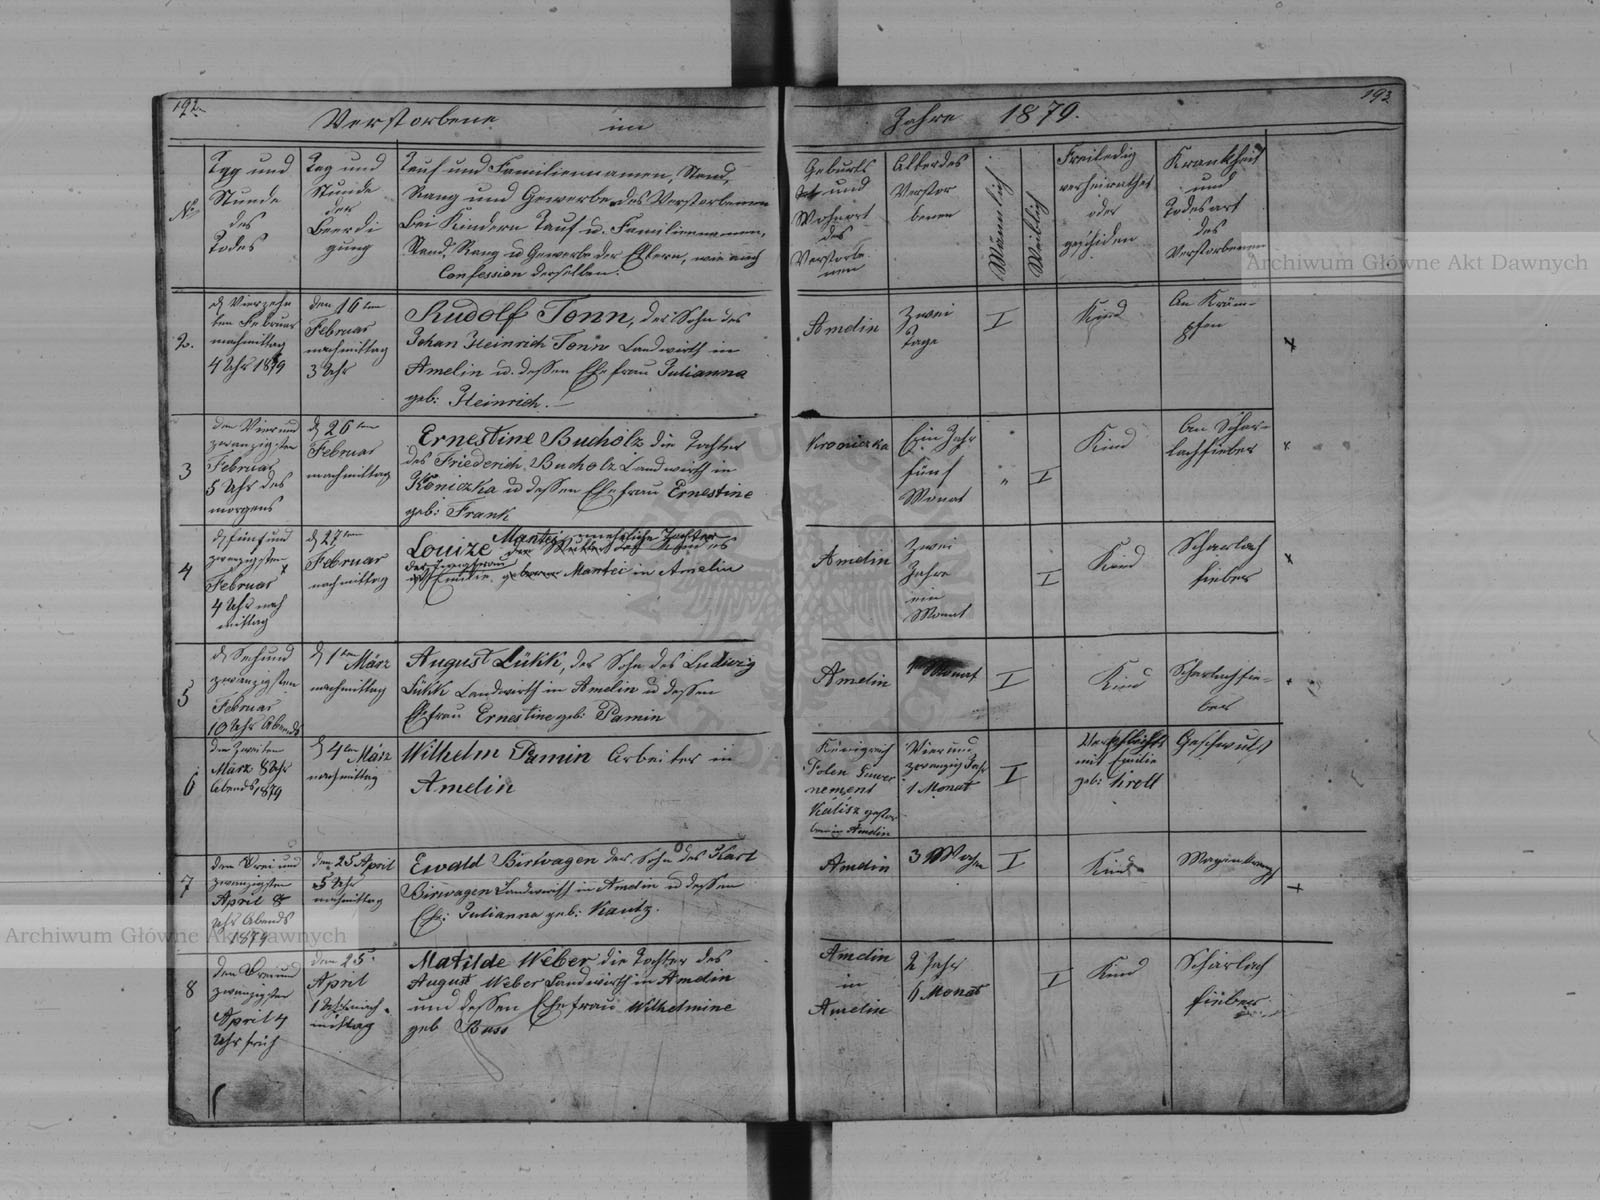 192.
193
Verstorbene im
Jahre 1879.
No
Tag und
Stunde
des
Todes
Tag und
Stunde
der
Beerdi
gung
Tauf und Familiennamen, Stand,
Rang und Gewerbe des Verstorbenen
Bei Kindern Tauf u. Familiennamen,
Stand, Rang u Gewerbe der Eltern, wie auch
Confession derselben.
Geburts
und
Wohnort
des
Verstorbe-
nen
Alter des
Verstor
benen
Männlich
Weiblich
Freiledig
verheirathet
oder
geschieden
Krankheit
und
Todesart
des
Verstorbenen
2.
d Vierzehn
ten Februar
nachmittag
4 Uhr 1879
den 16ten
Februar
nachmittag
3 Uhr
Rudolf Tonn, der Sohn des
Johan Heinrich Tonn Landwirth in
Amelin u. dessen Ehefrau Julianna
geb: Heinrich.
Amelin
Zwei
Tage
I
Kind
An Kräm-
pfen
3
den Vierund
zwanzigsten
Februar
5 Uhr des
morgens
d 26ten
Februar
nachmittag
Ernestine Bucholz die Tochter
des Friederich Bucholz Landwirth in
Koniczka u dessen Ehefrau Ernestine
geb: Frank
Ein Jahr
fünf
Monat
I
Kind
An Schar-
lachfieber
4
d fünfund
zwanzigsten
Februar
4 Uhr nach
mittag
d 27ten
Februar
nachmittag
Louize Mantei, uneheliche Tochter
der Jungfrau
Emilie Mantei in Amelin
Amelin
Zwei
Jahre
ein
Monat
I
Kind
Scharlach
fieber
5
d Sechsund
zwanzigsten
Februar
10 Uhr Abends
d 1ten März
nachmittag
August Lükk, der Sohn des Ludwig
Lükk Landwirth in Amelin u dessen
Ehefrau Ernestine geb: Pamin
Amelin
Monat
I
Kind
Scharlachfie-
ber
6
den Zweiten
März 8 Uhr
Abends 1879
d 4ten März
nachmittag
Wilhelm Pamin Arbeiter in
Amelin
Königreich
Polen Guver
nement
Kalisz gestor
ben in Amelin
Vierund
zwanzig Jahr
1 Monat
I
mit Emilie
geb: Kroll
Geschwulst
7
den Dreiund
zwanzigsten
April 8
Uhr Abends
1879
den 25 April
5 Uhr
nachmittag
Ewald Birwagen der Sohn des Karl
Birwagen Landwirth in Amelin u dessen
Ehe: Julianna geb: Kautz.
Amelin
3 Wochen
I
Kind
8
den Dreiund
zwanzigsten
April 4
Uhr früh
den 25
April
1 Uhr nach
mittag
Matilde Weber die Tochter des
August Weber Landwirth in Amelin
und dessen Ehefrau Wilhelmine
geb Buss
Amelin
in
Amelin
2 Jahr
6 Monat
I
Kind
Scharlach
fieber
Archiwum Główne Akt Dawnych
Archiwum Główne Akt Dawnych